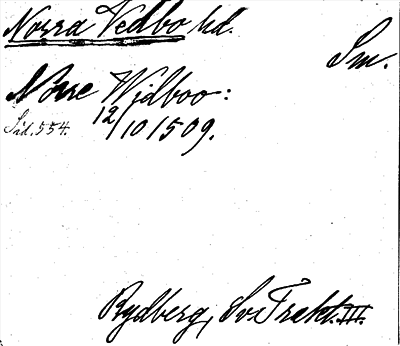 Norra Vedbo hd.
Sm.
Nörre Widboo:
Sid. 554. 12/10 1509.
Rydberg, Sv. Trakt. III.